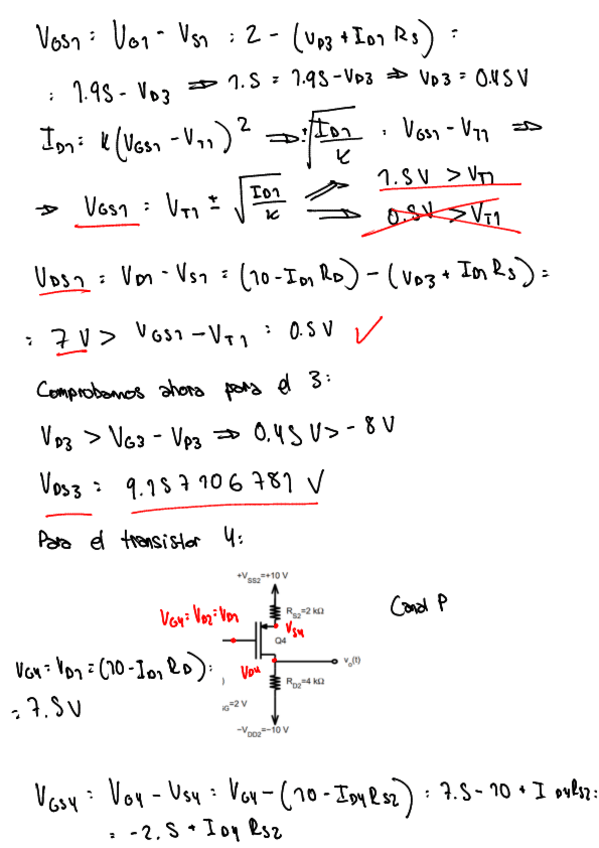 V_GS1 = V_G1 - V_S1 = 2 - (V_D3 + I_D1 R_S) =
= 1.95 - V_D3 ⇒ 1.5 = 1.95 - V_D3 ⇒ V_D3 = 0.45 V
I_D1 = K(V_GS1 - V_T1)^2 ⇒ ±√(I_D1/K) = V_GS1 - V_T1 ⇒
⇒ V_GS1 = V_T1 ± √(I_D1/K) ⇒ 1.5 V > V_T1
⇒ 0.5 V > V_T1
V_DS1 = V_D1 - V_S1 = (10 - I_D1 R_D) - (V_D3 + I_D1 R_S) =
= 7 V > V_GS1 - V_T1 = 0.5 V ✓
Comprobamos ahora para el 3:
V_D3 > V_G3 - V_P3 ⇒ 0.45 V > -8 V
V_DS3 = 9.157106781 V
Para el transistor 4:
+V_SS2=+10 V
Canal P
R_S2=2 kΩ
V_G4 = V_D2 = V_D1
V_S4
Q4
V_D4
v_o(t)
V_G4 = V_D1 = (10 - I_D1 R_D) =
)
R_D2=4 kΩ
= 7.5 V
iG=2 V
-V_DD2=-10 V
V_GS4 = V_G4 - V_S4 = V_G4 - (10 - I_D4 R_S2) = 7.5 - 10 + I_D4 R_S2 =
= -2.5 + I_D4 R_S2